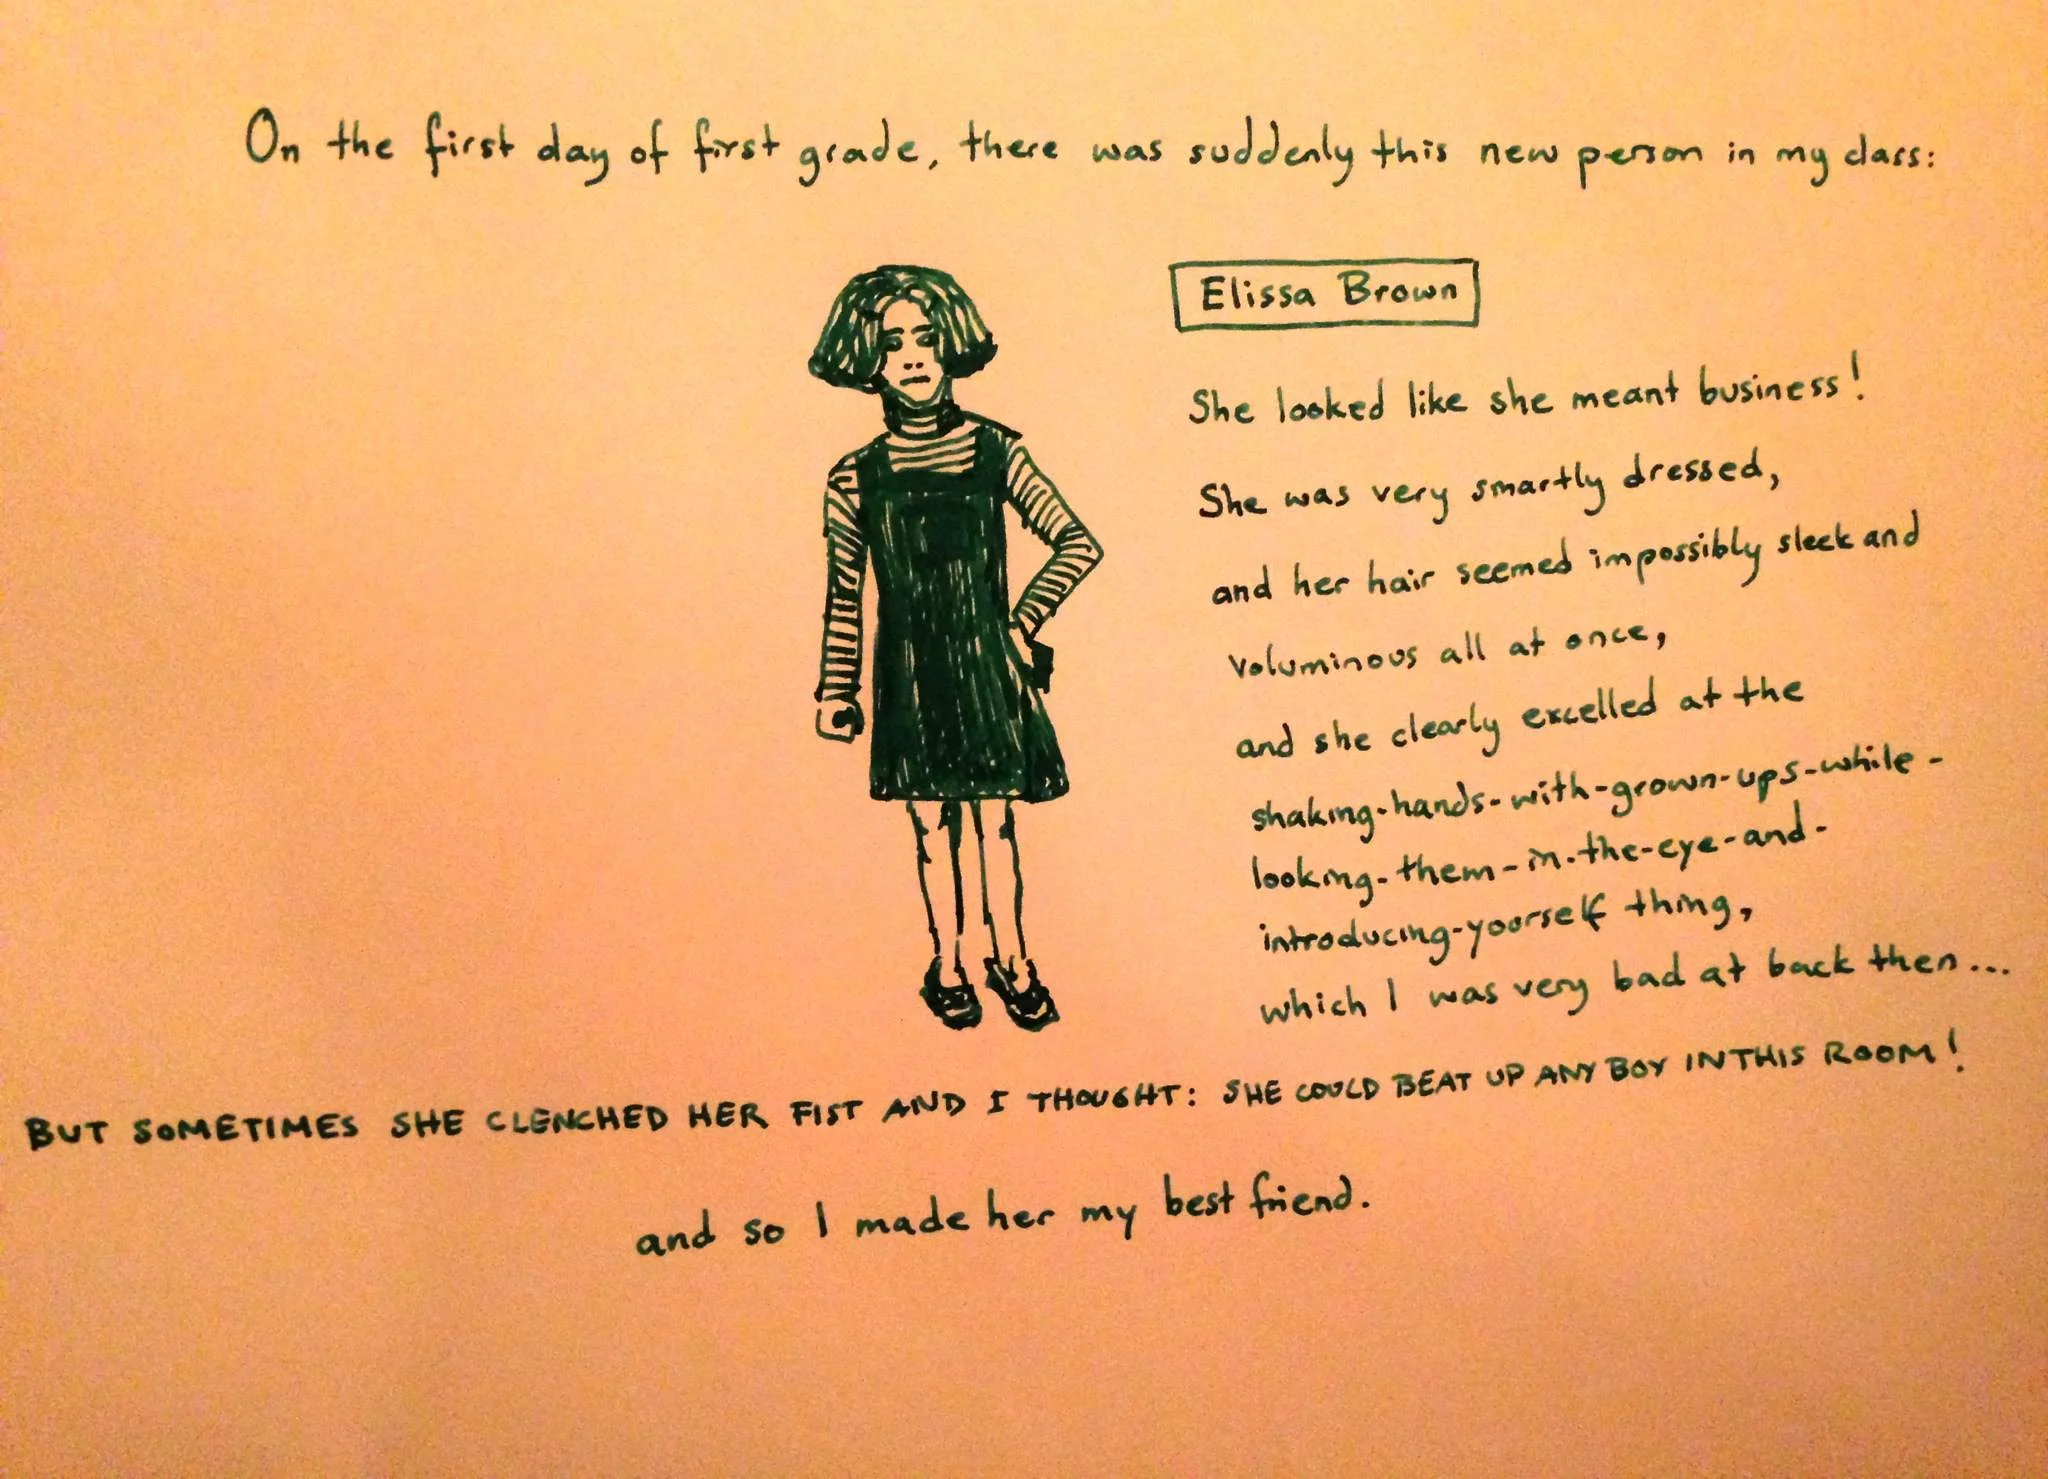 On the first day of first grade, there was suddenly this new person in my class:
Elissa Brown
She looked like she meant business!
She was very smartly dressed,
and her hair seemed impossibly sleek and
voluminous all at once,
and she clearly excelled at the
shaking-hands-with-grown-ups-while-
looking-them-in-the-eye-and-
introducing-yourself thing,
which I was very bad at back then...
BUT SOMETIMES SHE CLENCHED HER FIST AND I THOUGHT: SHE COULD BEAT UP ANY BOY IN THIS ROOM!
and so I made her my best friend.